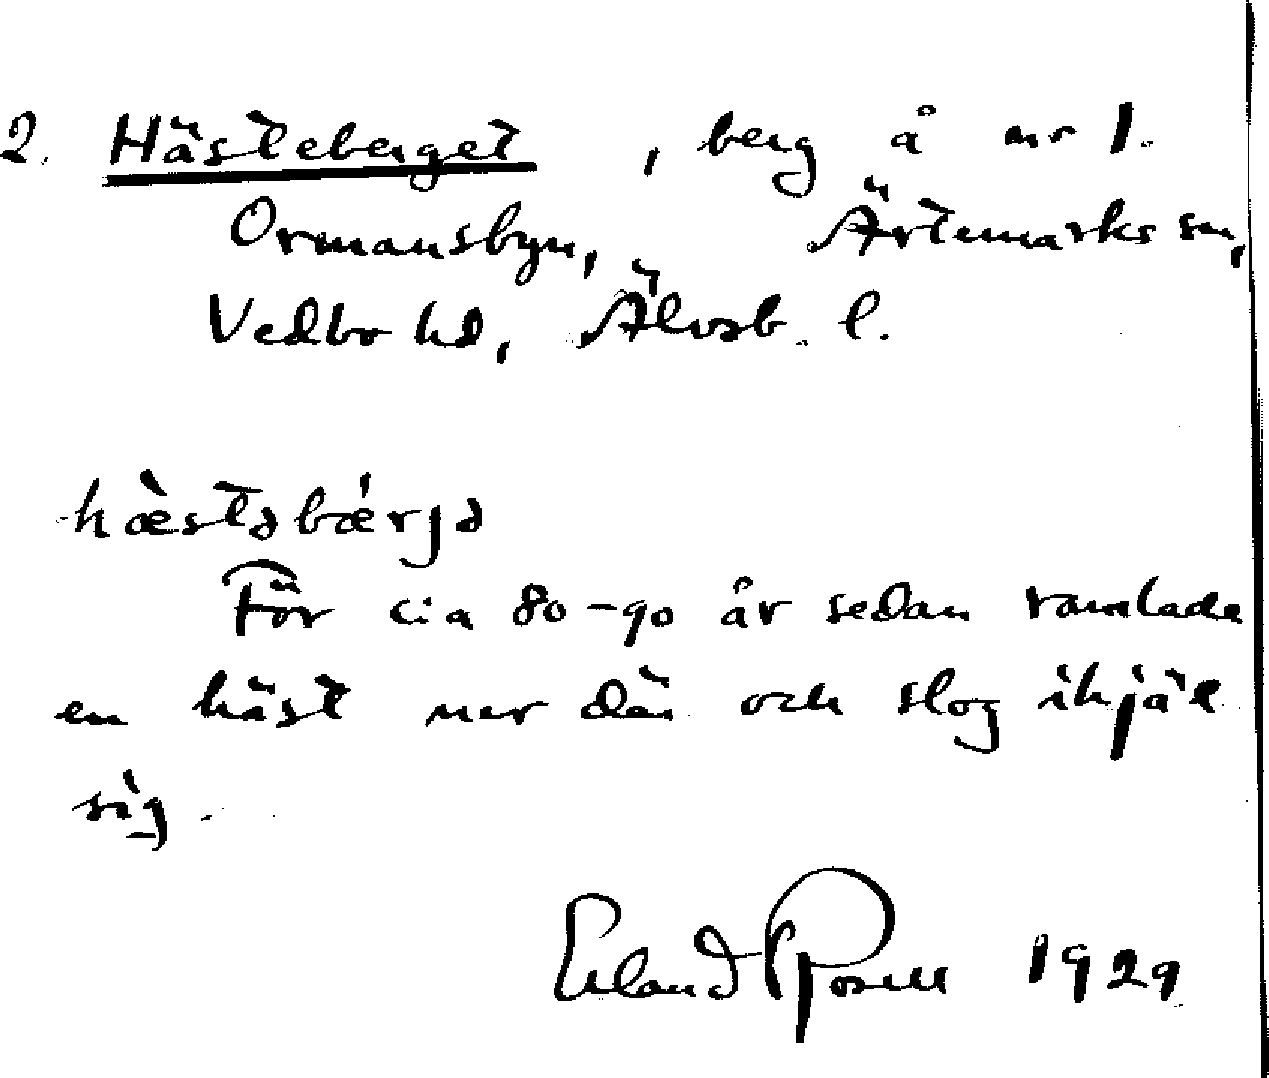 2. Hästeberget, berg å nr 1.
Ormansbyn, Ärtemarks sn,
Vedbo hd, Älvsb. l.
hæ̀stəbǽrjə
För c:a 80-90 år sedan ramlade
en häst ner där och slog ihjäl
sig.
Erland Rosell 1929